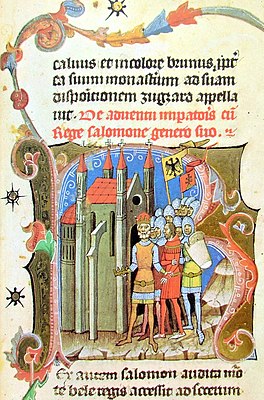 caluus et in colore brunus, ipt
ca suum monastium ad suam
dispoitionem zugzard appella
uit. De adventu impatoris cū
Rege salomone genero suo.
R
Ex autem salomon audita mor
te bele regis accessit ad socerum